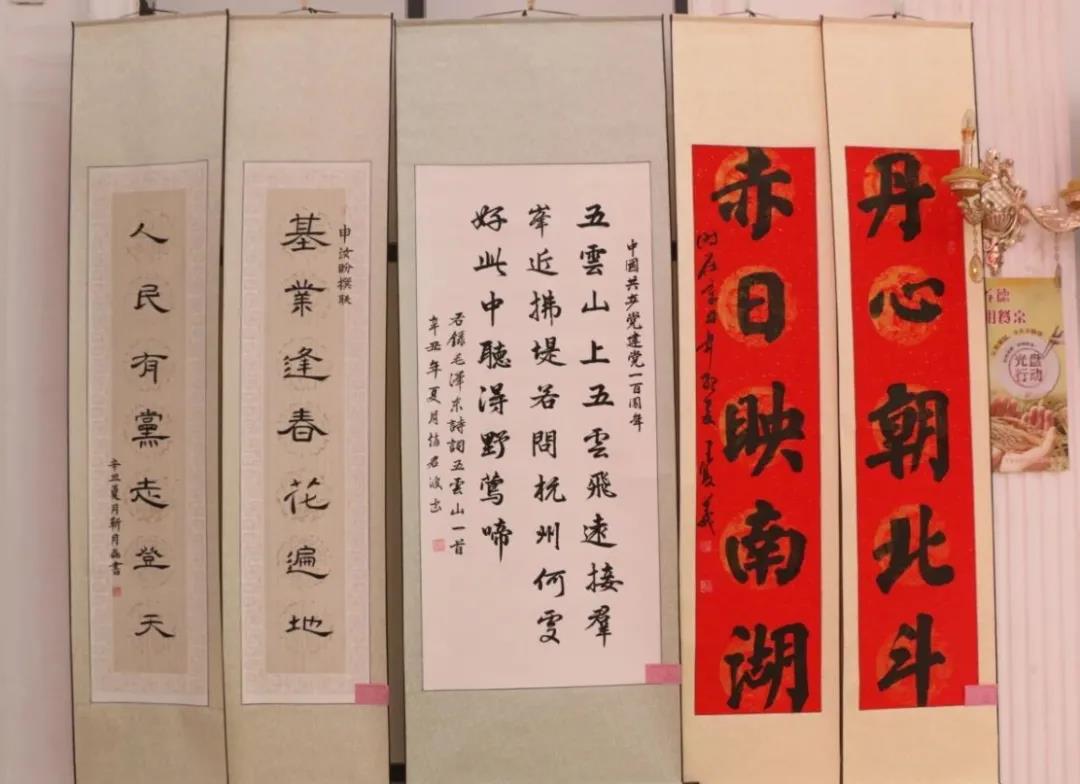 丹心朝北斗
赤日映南湖
中國共产党建党一百周年
五雲山上五雲飛遠接羣
峯近拂堤若問杭州何處
好此中聽得野鶯啼
右錄毛澤東詩詞五雲山一首
辛丑年夏月
申汝盼撰联
基業逢春花遍地
人民有黨志登天
辛丑夏月靳月書
光盘
行动